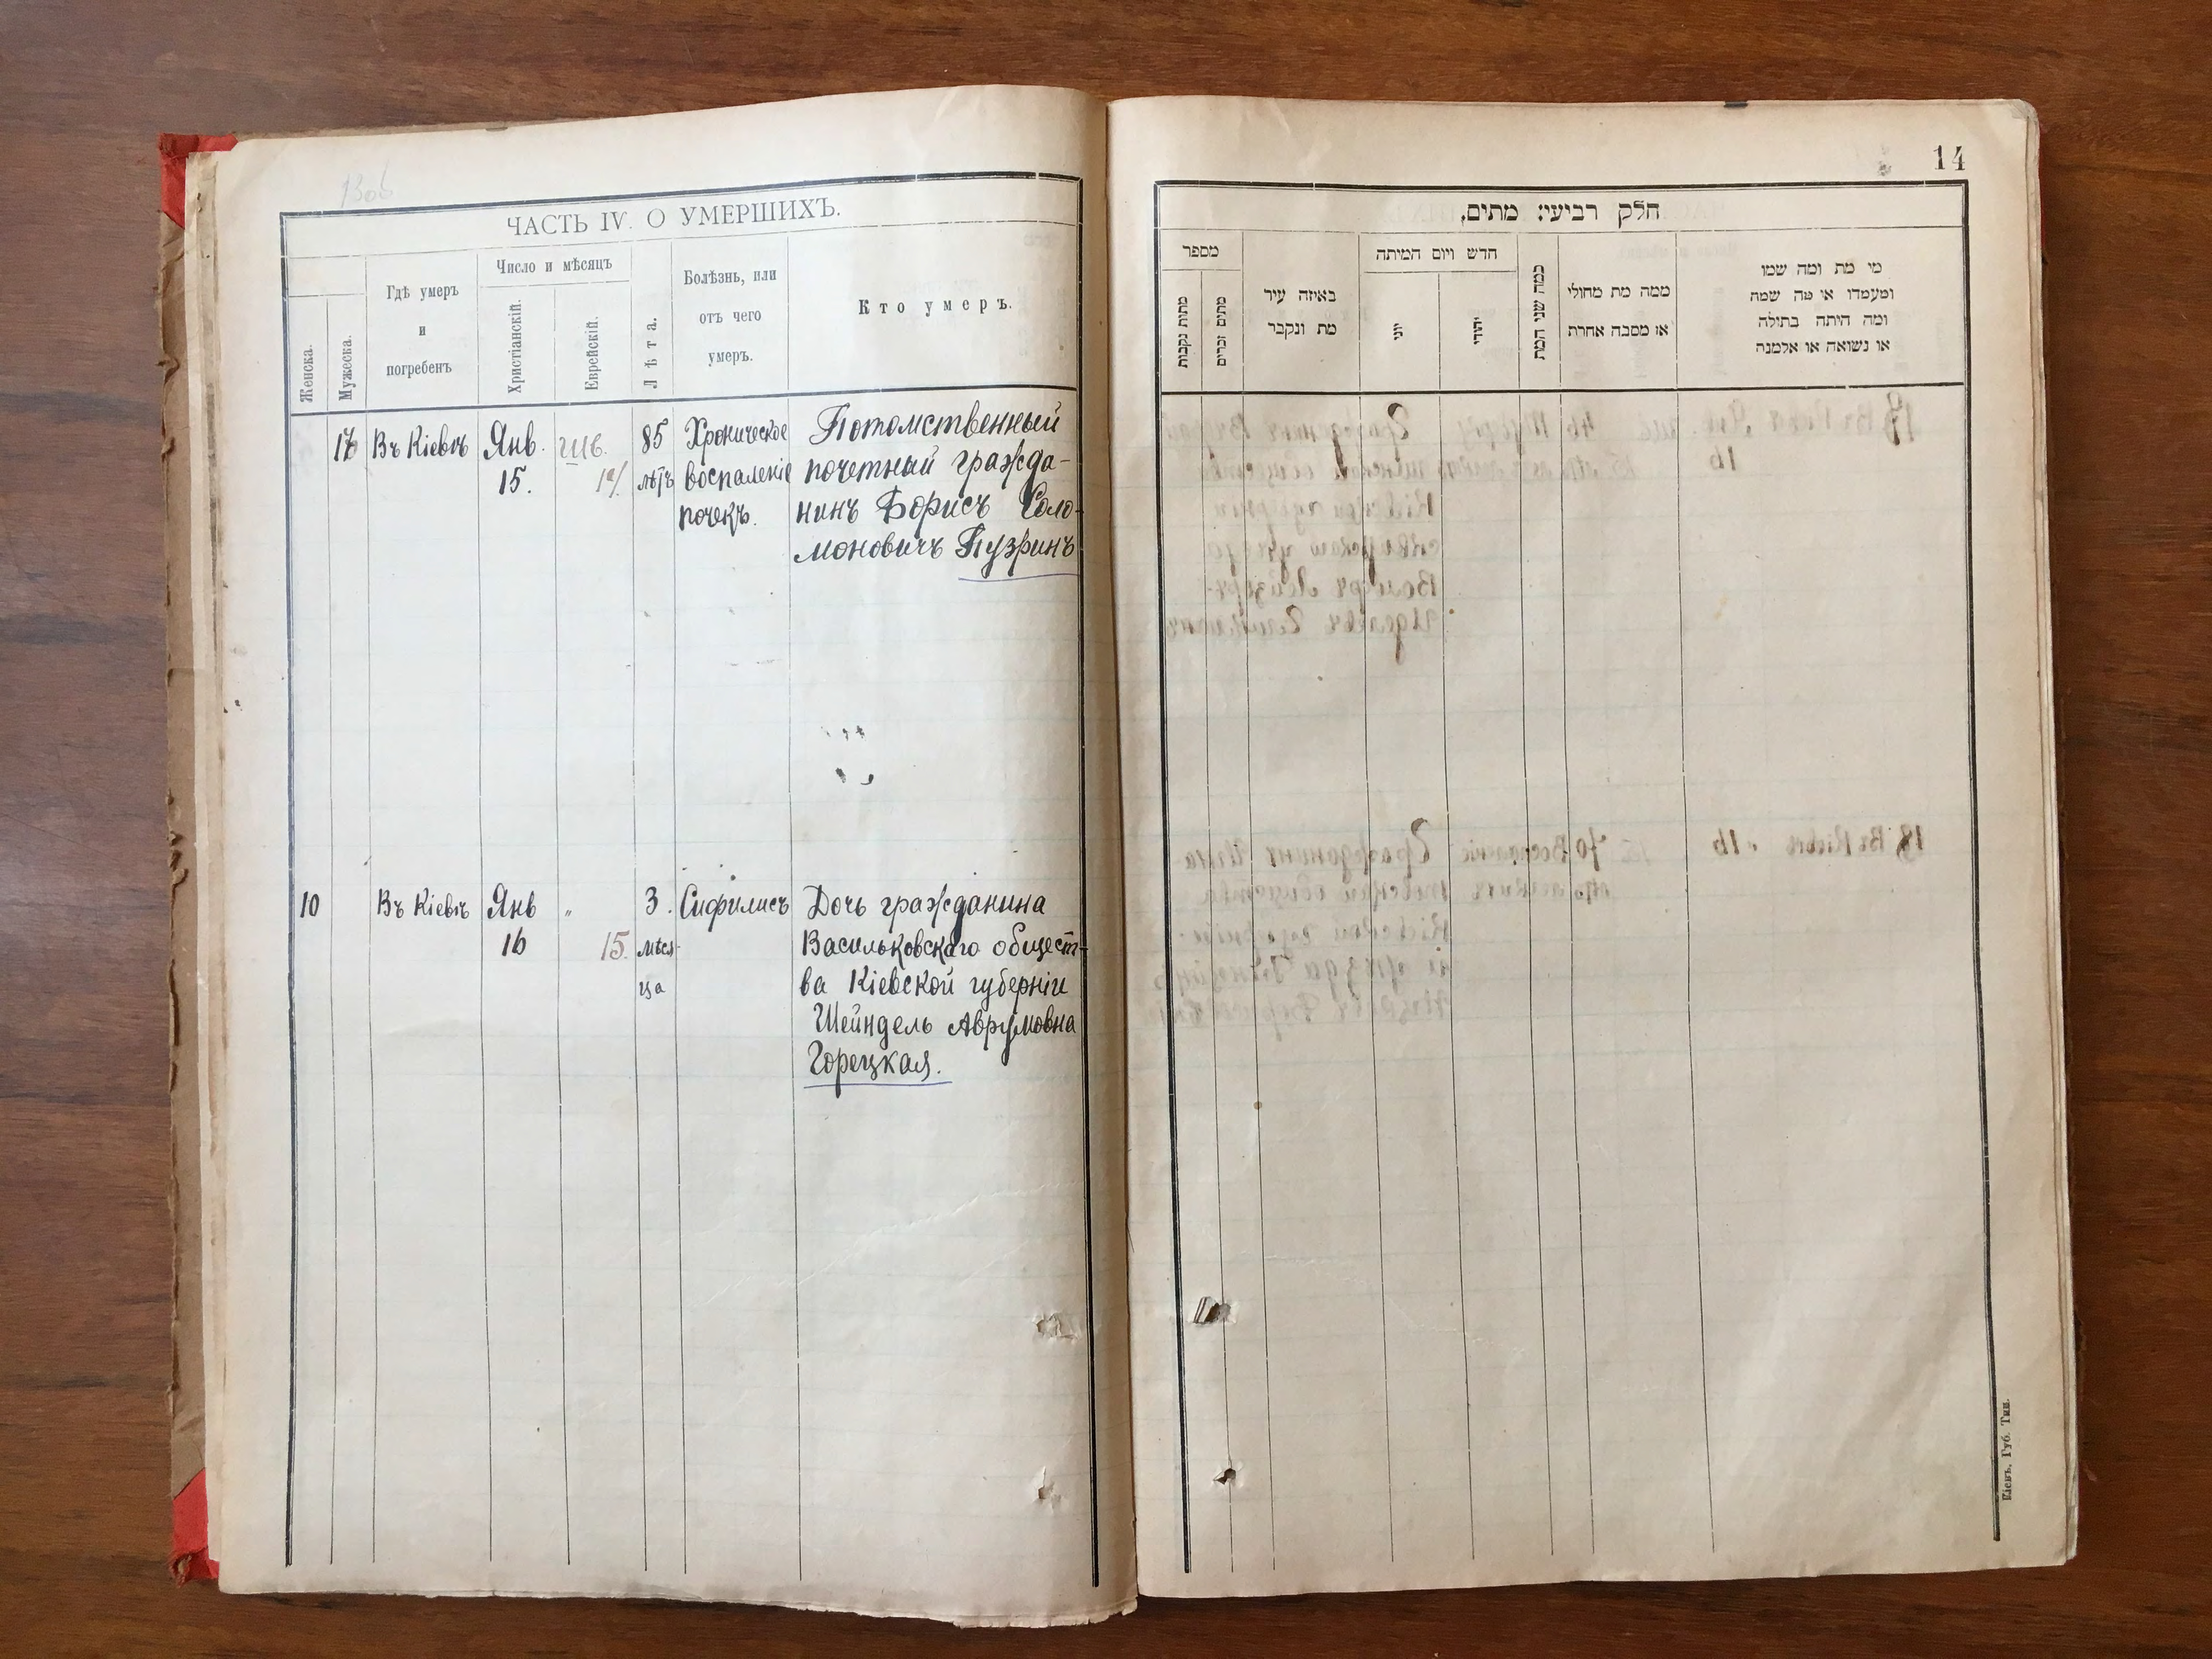 13об
ЧАСТЬ IV. О УМЕРШИХЪ.
Женска.
Мужеска.
Гдѣ умеръ
и
погребенъ
Число и мѣсяцъ
Христіанскій.
Еврейскій.
Лѣта.
Болѣзнь, или
отъ чего
умеръ.
Кто умеръ.
Въ Кіевѣ Янв. 85 Хроническое Потомственный
15. лѣтъ воспаленіе почетный гражда-
почекъ. нинъ Борисъ Соло-
моновичъ Пузринъ
10 Въ Кіевѣ Янв „ 3. Сифилисъ Дочь гражданина
16 15. мѣся- Васильковскаго общест-
ца ва Кіевской губерніи
Шейндель Аврумовна
Горецкая.
14
חלק רביעי: מתים.
מספר
מתות נקבות
מתים זכרים
באיזה עיר
מת ונקבר
חדש ויום המיתה
יוני
יהודי
כמה שני המת
ממה מת מחולי
או מסבה אחרת
מי מת ומה שמו
ומעמדו או מה שמה
ומה היתה בתילה
או נשואה או אלמנה
Кіевъ, Губ. Тип.